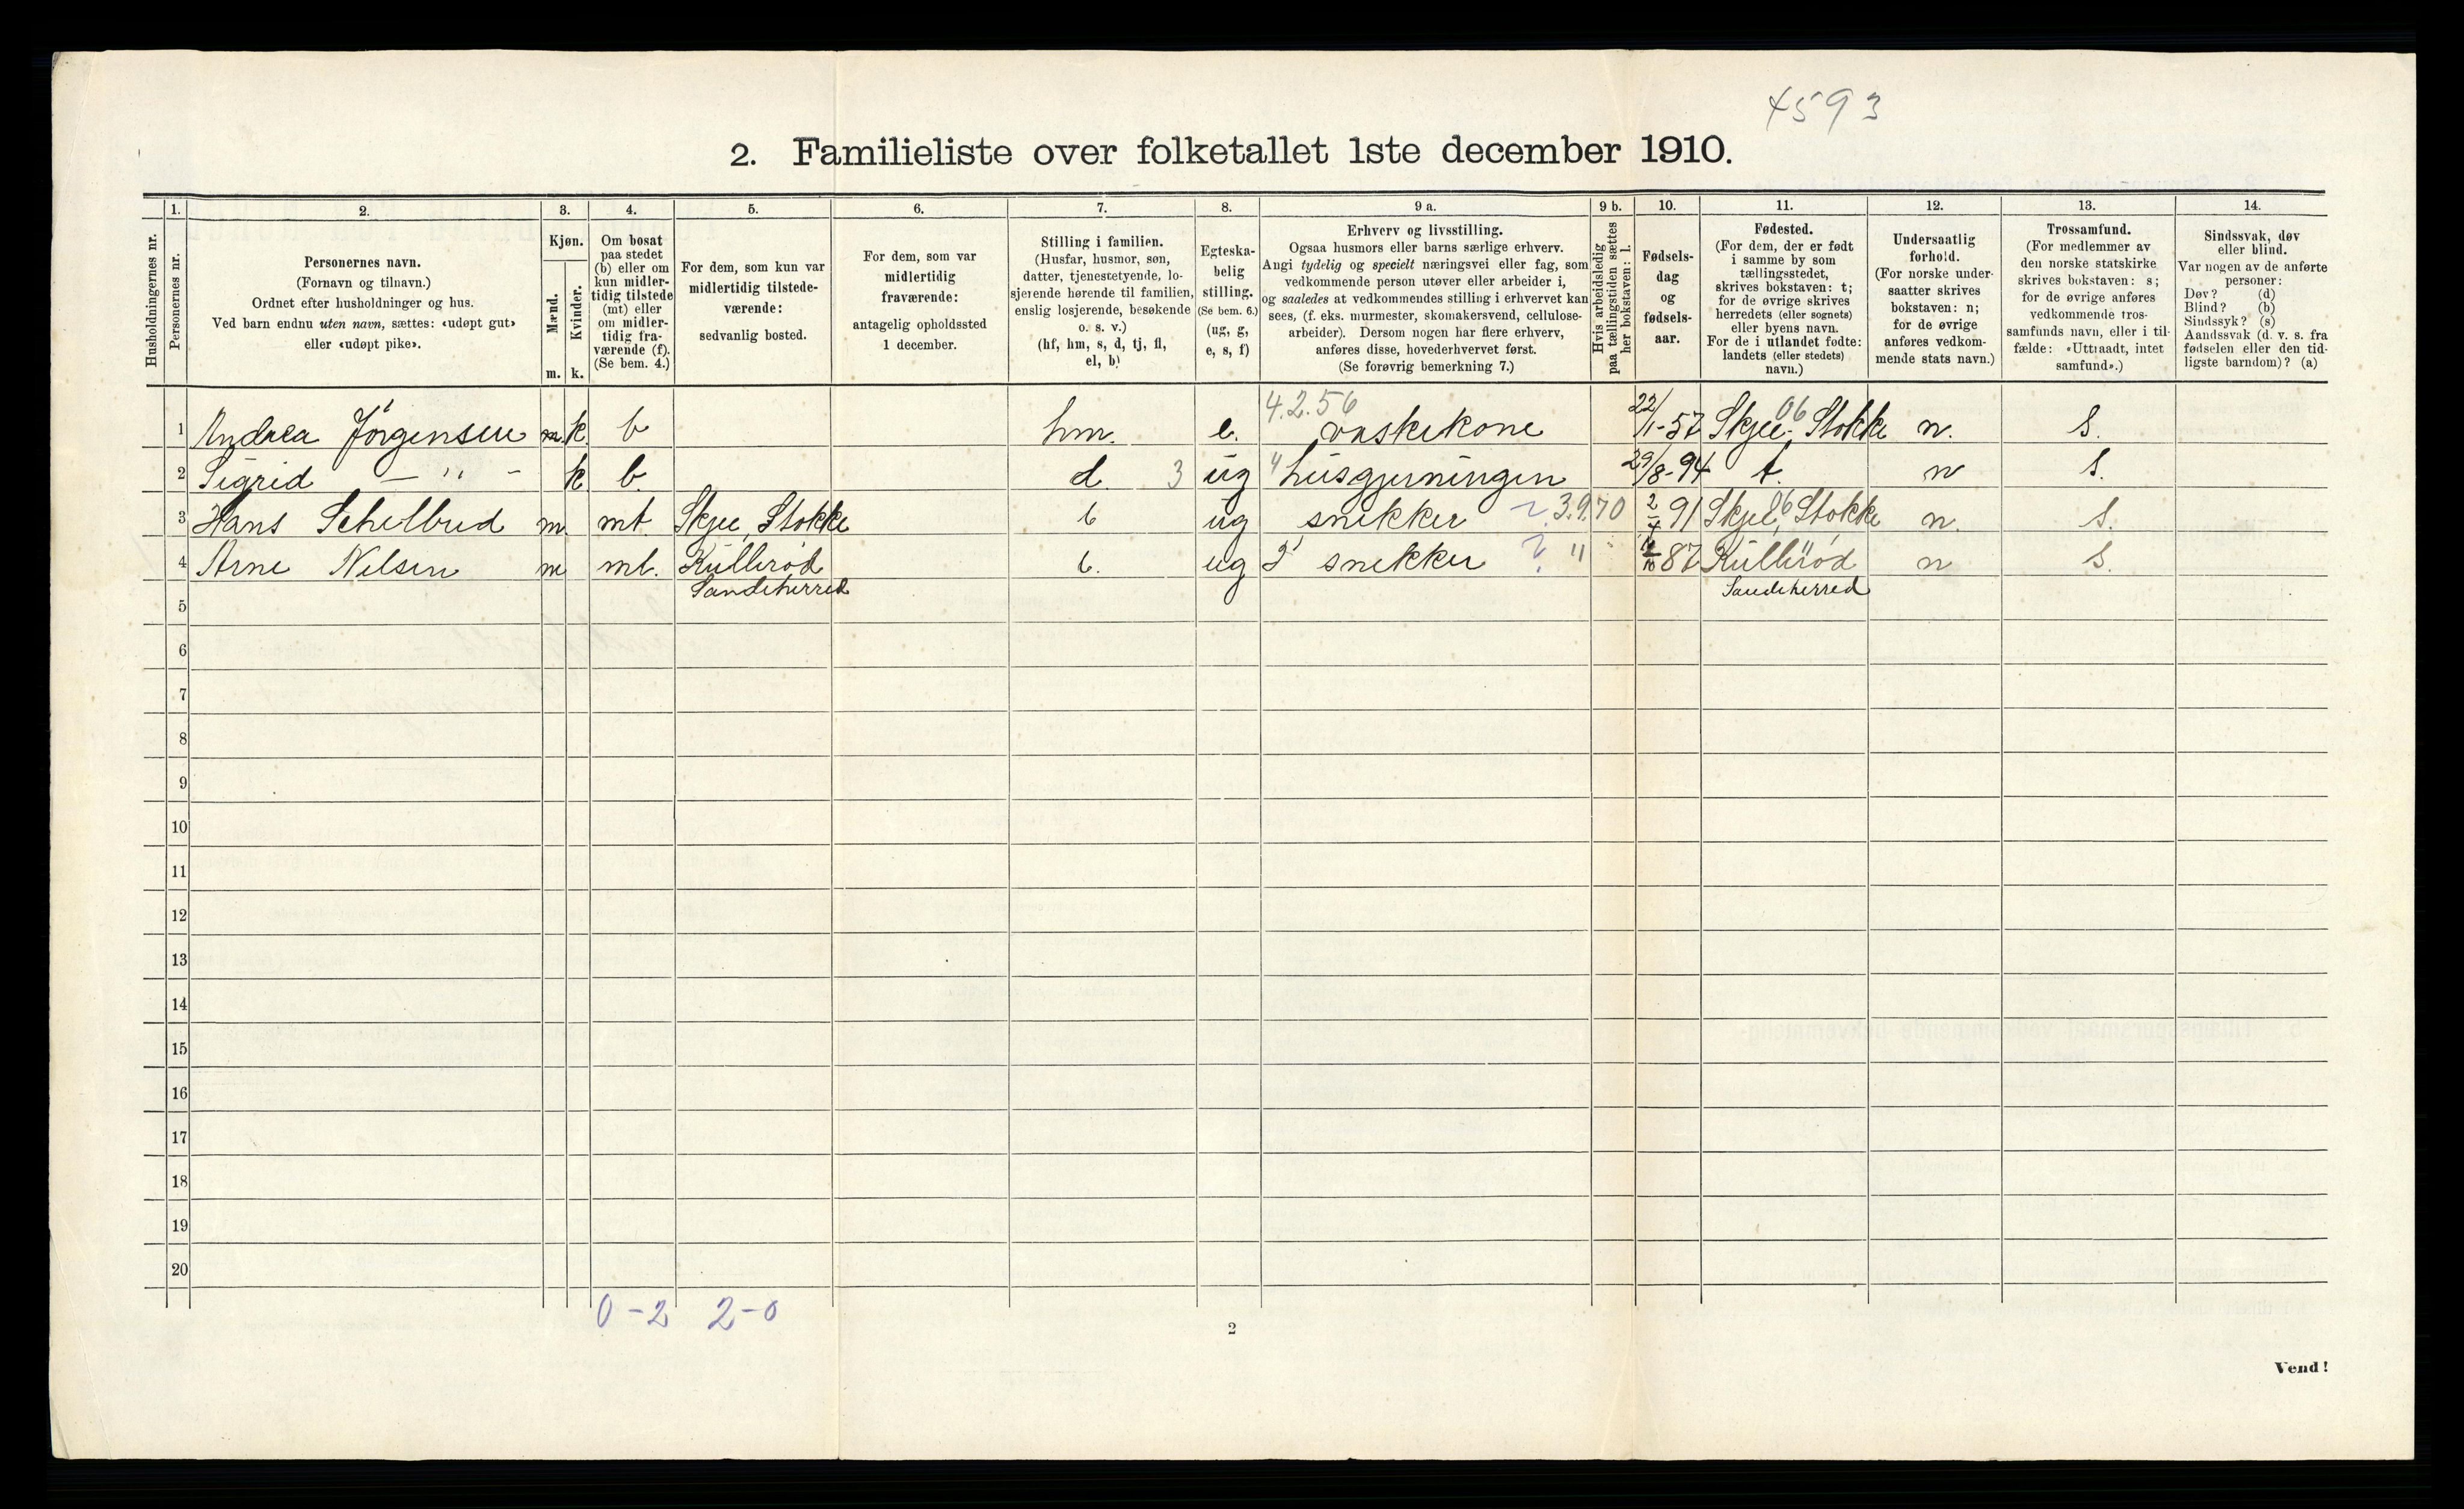 4593
2. Familieliste over folketallet 1ste december 1910.
1. 2. 3. 4. 5. 6. 7. 8. 9 a. 9 b. 10. 11. 12. 13. 14.
Husholdningernes nr.
Personernes nr.
Personernes navn.
(Fornavn og tilnavn.)
Ordnet efter husholdninger og hus.
Ved barn endnu uten navn, sættes: «udøpt gut»
eller «udøpt pike».
Kjøn.
Mænd.
Kvinder.
m. k.
Om bosat
paa stedet
(b) eller om
kun midler-
tidig tilstede
(mt) eller
om midler-
tidig fra-
værende (f).
(Se bem. 4.)
For dem, som kun var
midlertidig tilstede-
værende:
sedvanlig bosted.
For dem, som var
midlertidig
fraværende:
antagelig opholdssted
1 december.
Stilling i familien.
(Husfar, husmor, søn,
datter, tjenestetyende, lo-
sjerende hørende til familien,
enslig losjerende, besøkende
o. s. v.)
(hf, hm, s, d, tj, fl,
el, b)
Egteska-
belig
stilling.
(Se bem. 6.)
(ug, g,
e, s, f)
Erhverv og livsstilling.
Ogsaa husmors eller barns særlige erhverv.
Angi tydelig og specielt næringsvei eller fag, som
vedkommende person utøver eller arbeider i,
og saaledes at vedkommendes stilling i erhvervet kan
sees, (f. eks. murmester, skomakersvend, cellulose-
arbeider). Dersom nogen har flere erhverv,
anføres disse, hovederhvervet først.
(Se forøvrig bemerkning 7.)
Hvis arbeidsledig
paa tællingstiden sættes
her bokstaven: l.
Fødsels-
dag
og
fødsels-
aar.
Fødested.
(For dem, der er født
i samme by som
tællingsstedet,
skrives bokstaven: t;
for de øvrige skrives
herredets (eller sognets)
eller byens navn.
For de i utlandet fødte:
landets (eller stedets)
navn.)
Undersaatlig
forhold.
(For norske under-
saatter skrives
bokstaven: n;
for de øvrige
anføres vedkom-
mende stats navn.)
Trossamfund.
(For medlemmer av
den norske statskirke
skrives bokstaven: s;
for de øvrige anføres
vedkommende tros-
samfunds navn, eller i til-
fælde: «Uttraadt, intet
samfund».)
Sindssvak, døv
eller blind.
Var nogen av de anførte
personer:
Døv? (d)
Blind? (b)
Sindssyk? (s)
Aandssvak (d. v. s. fra
fødselen eller den tid-
ligste barndom)? (a)
4.2.56
1 Andrea Jörgensen m. k. b hm. e. vaskekone 22/1-57 Skjee, 06 Stokke n. S.
2 Sigrid — " — k b. d. 3 ug 4 husgjerningen 29/8-94 t. n S.
3 Hans Schelbred m. mt. Skjee, Stokke b ug snekker 3.9.70 2/4 91 Skjee, 06 Stokke n. S.
4 Arne Nilsen m mt. Kullerød b. ug snekker ? " 87 Kullerød n S.
Sandeherred Sandeherred
5
6
7
8
9
10
11
12
13
14
15
16
17
18
19
20
0-2 2-0
2
Vend!